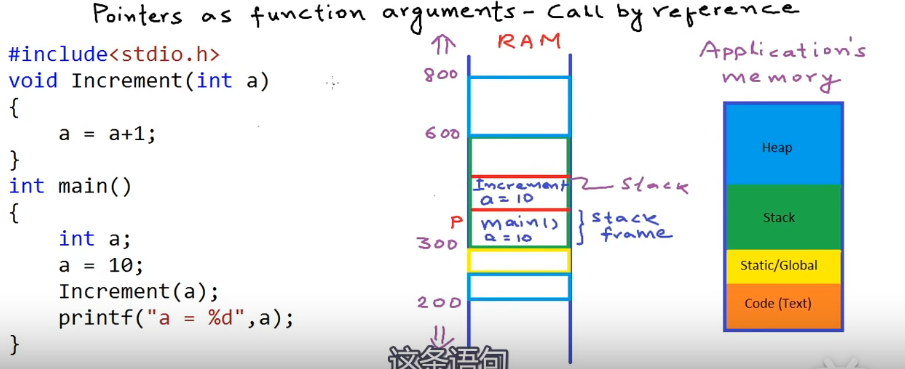 Pointers as function arguments - Call by reference
#include<stdio.h>
void Increment(int a)
{
    a = a+1;
}
int main()
{
    int a;
    a = 10;
    Increment(a);
    printf("a = %d",a);
}
RAM
800
600
Increment
a = 10
Stack
P
main()
a = 10
stack
frame
300
200
Application's
memory
Heap
Stack
Static/Global
Code (Text)
这条语句